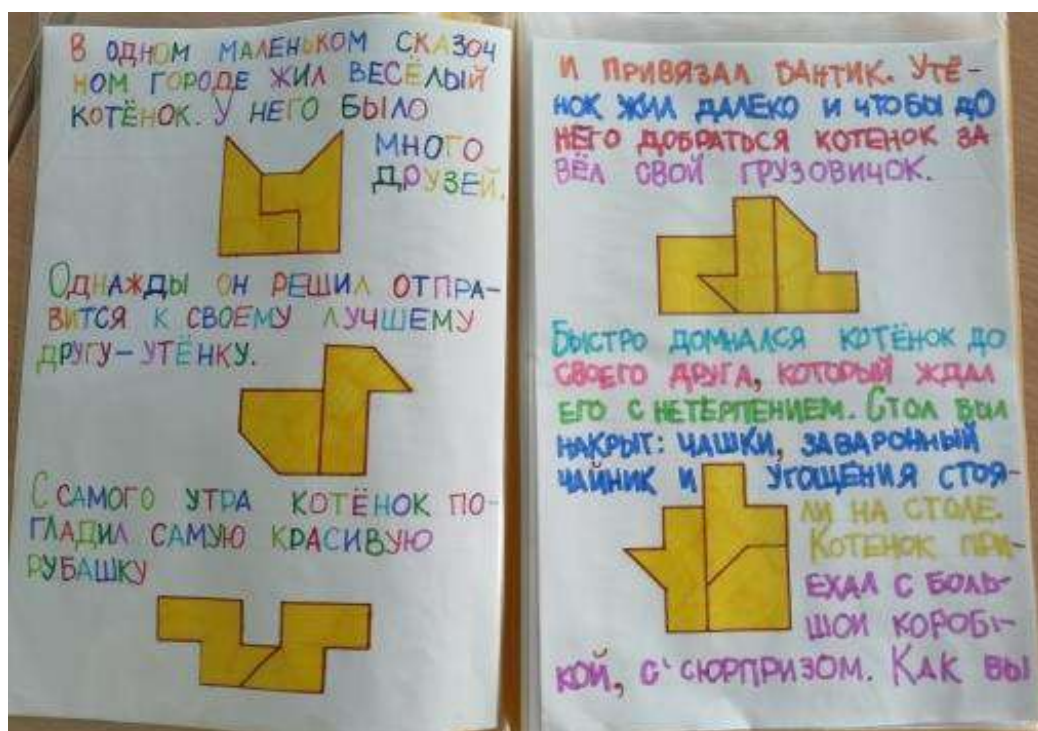 В одном маленьком сказоч
ном городе жил весёлый
котёнок. У него было
много
друзей.
Однажды он решил отпра-
вится к своему лучшему
другу-утёнку.
С самого утра котёнок по-
гладил самую красивую
рубашку
и привязал бантик. Утё-
нок жил далеко и чтобы до
него добраться котенок за
вёл свой грузовичок.
Быстро домчался котёнок до
своего друга, который ждал
его с нетерпением. Стол был
накрыт: чашки, заваронный
чайник и угощения стоя-
ли на столе.
Котенок при-
ехал с боль-
шой короб-
кой, с сюрпризом. Как вы